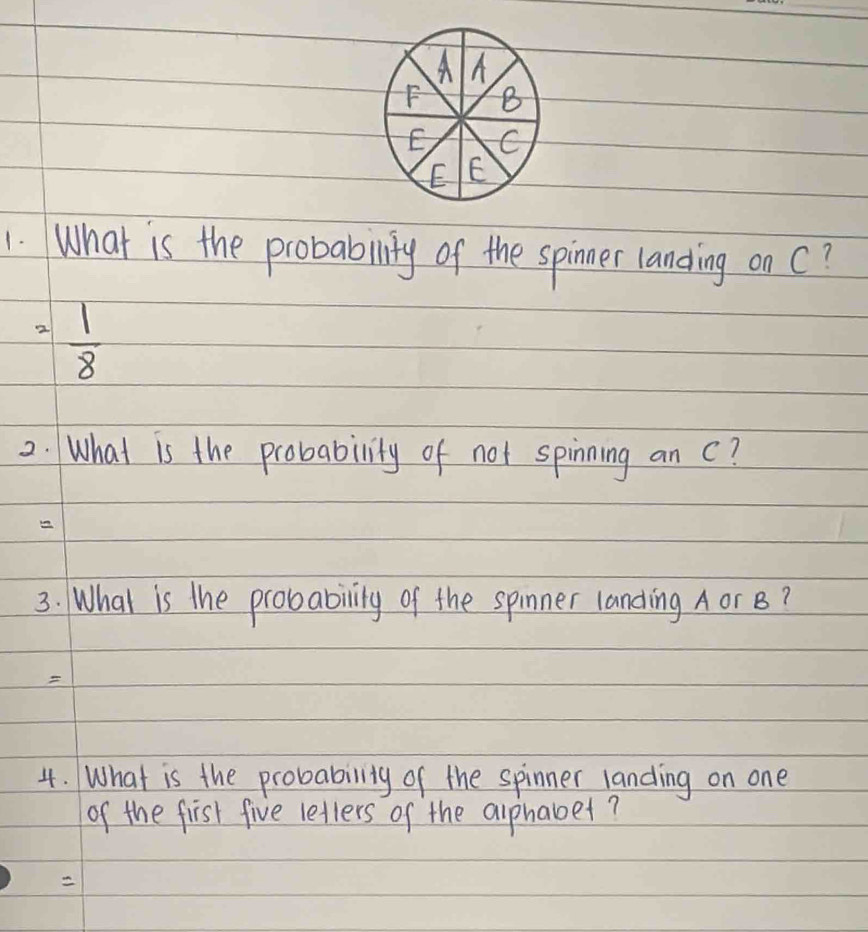 A A
F B
E C
E E
1. What is the probability of the spinner landing on C?
= 1/8
2. What is the probability of not spinning an C?
=
3. What is the probability of the spinner landing A or B?
=
4. What is the probability of the spinner landing on one
of the first five letters of the alphabet?
=